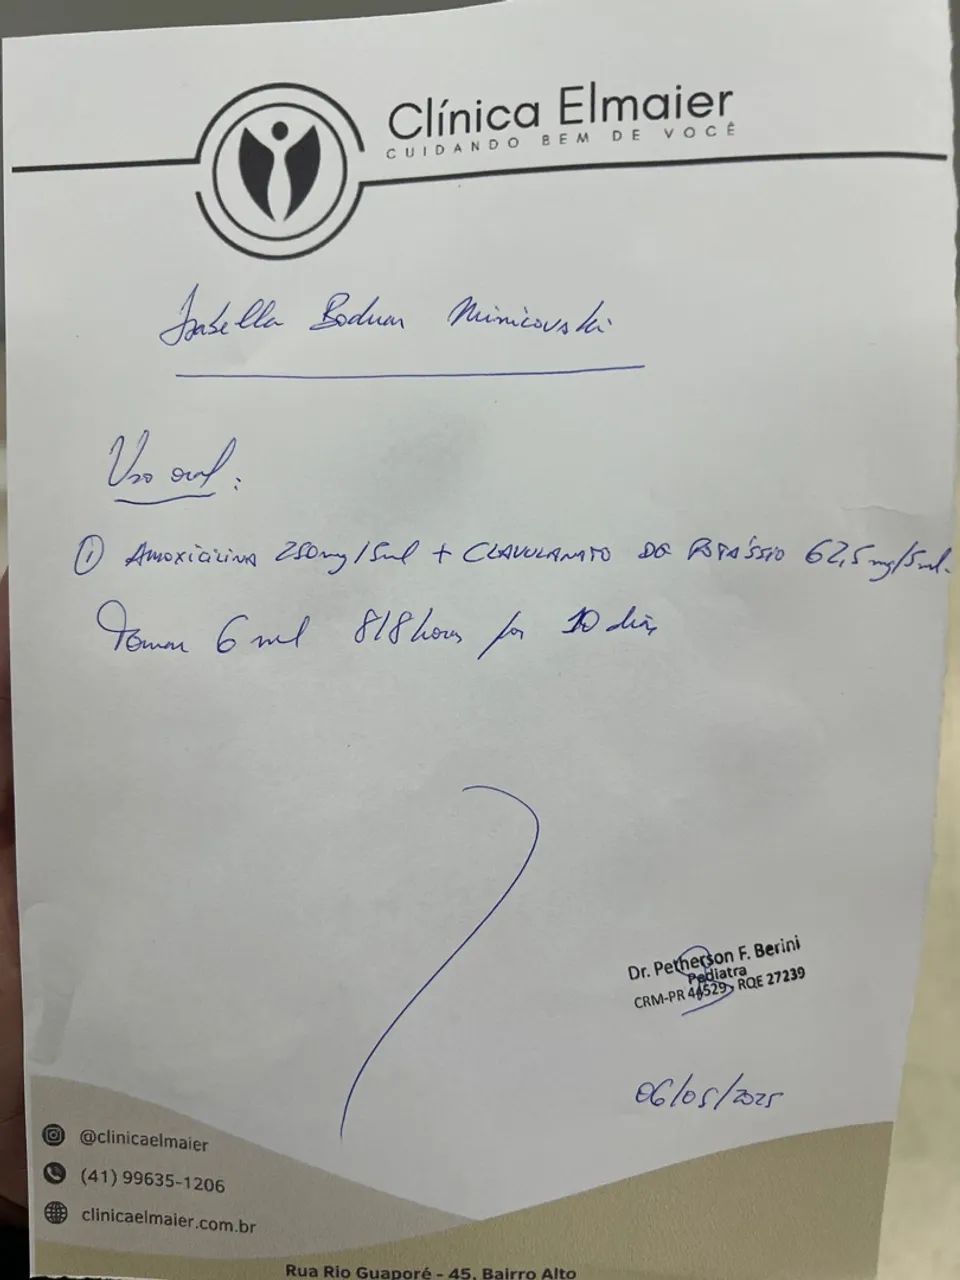 Clínica Elmaier
CUIDANDO BEM DE VOCÊ
Isabella Boduar Minicovski
Uso oral:
① AMOXICILINA 250mg/5ml + CLAVULANATO DE POTÁSSIO 62,5mg/5ml.
Tomar 6 ml 8/8 horas por 10 dias
Dr. Petherson F. Berini
Pediatra
CRM-PR 44529 - RQE 27239
06/05/2025
@clinicaelmaier
(41) 99635-1206
clinicaelmaier.com.br
Rua Rio Guaporé - 45, Bairro Alto